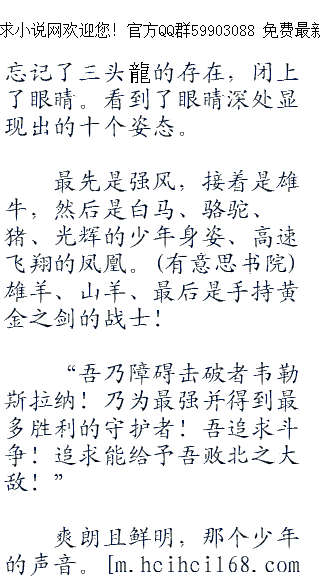 求小说网欢迎您！官方QQ群59903088 免费最新
忘记了三头龍的存在，闭上
了眼睛。看到了眼睛深处显
现出的十个姿态。
最先是强风，接着是雄
牛，然后是白马、骆驼、
猪、光辉的少年身姿、高速
飞翔的凤凰。(有意思书院)
雄羊、山羊、最后是手持黄
金之剑的战士！
“吾乃障碍击破者韦勒
斯拉纳！乃为最强并得到最
多胜利的守护者！吾追求斗
争！追求能给予吾败北之大
敌！”
爽朗且鲜明，那个少年
的声音。[m.hcihcil68.com